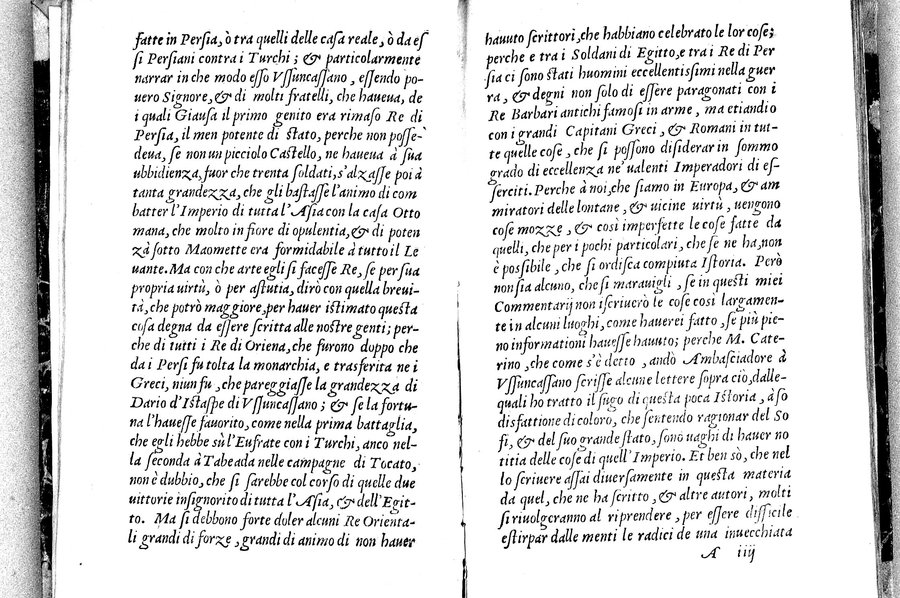 fatte in Persia, ò tra quelli delle casa reale, ò da es
si Persiani contra i Turchi; & particolarmente
narrar in che modo esso Vssuncassano, essendo po-
uero Signore, & di molti fratelli, che haueua, de
i quali Giausa il primo genito era rimaso Re di
Persia, il men potente di stato, perche non posse-
deua, se non un picciolo Castello, ne haueua à sua
ubbidienza, fuor che trenta soldati, s'alzasse poi à
tanta grandezza, che gli bastasse l'animo di com
batter l'Imperio di tutta l'Asia con la casa Otto
mana, che molto in fiore di opulentia, & di poten
zà sotto Maomette era formidabile à tutto il Le
uante. Ma con che arte egli si facesse Re, se per sua
propria uirtù, ò per astutia, dirò con quella breui-
tà, che potrò maggiore, per hauer istimato questa
cosa degna da essere scritta alle nostre genti; per-
che di tutti i Re di Oriena, che furono doppo che
da i Persi fu tolta la monarchia, e trasferita ne i
Greci, niun fu, che pareggiasse la grandezza di
Dario d'Istaspe di Vssuncassano; & se la fortu-
na l'hauesse fauorito, come nella prima battaglia,
che egli hebbe sù l'Eufrate con i Turchi, anco nel-
la seconda à Tabeada nelle campagne di Tocato,
non è dubbio, che si sarebbe col corso di quelle due
uittorie insignorito di tutta l'Asia, & dell'Egit-
to. Ma si debbono forte doler alcuni Re Orienta-
li grandi di forze, grandi di animo di non hauer
hauuto scrittori, che habbiano celebrato le lor cose;
perche e tra i Soldani di Egitto, e tra i Re di Per
sia ci sono stati huomini eccellentissimi nella guer
ra, & degni non solo di essere paragonati con i
Re Barbari antichi famosi in arme, ma etiandio
con i grandi Capitani Greci, & Romani in tut-
te quelle cose, che si possono disiderar in sommo
grado di eccellenza ne' ualenti Imperadori di es-
serciti. Perche à noi, che siamo in Europa, & am
miratori delle lontane, & uicine uirtù, uengono
cose mozze, & così imperfette le cose fatte da
quelli, che per i pochi particolari, che se ne ha, non
è possibile, che si ordisca compiuta Istoria. Però
non sia alcuno, che si marauigli, se in questi miei
Commentarij non iscriuerò le cose così largamen-
te in alcuni luoghi, come hauerei fatto, se più pie-
no informationi hauesse hauuto; perche M. Cate-
rino, che come s'è detto, andò Ambasciadore à
Vssuncassano scrisse alcune lettere sopra ciò, dalle-
quali ho tratto il sugo di questa poca Istoria, à so
disfattione di coloro, che sentendo ragionar del So
fi, & del suo grande stato, sono uaghi di hauer no
titia delle cose di quell'Imperio. Et ben sò, che nel
lo scriuere assai diuersamente in questa materia
da quel, che ne ha scritto, & altre autori, molti
si riuolgeranno al riprendere, per essere difficile
estirpar dalle menti le radici de una inuecchiata
A iiij